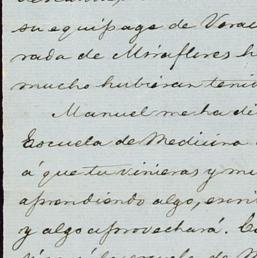 su equipage de Vera
rada de Miraflores h
mucho hubieran teni
Manuel me ha di
Escuela de Medicina
á que tu vinieras y mi
aprendiendo algo, escri
y algo aprovechará. Co